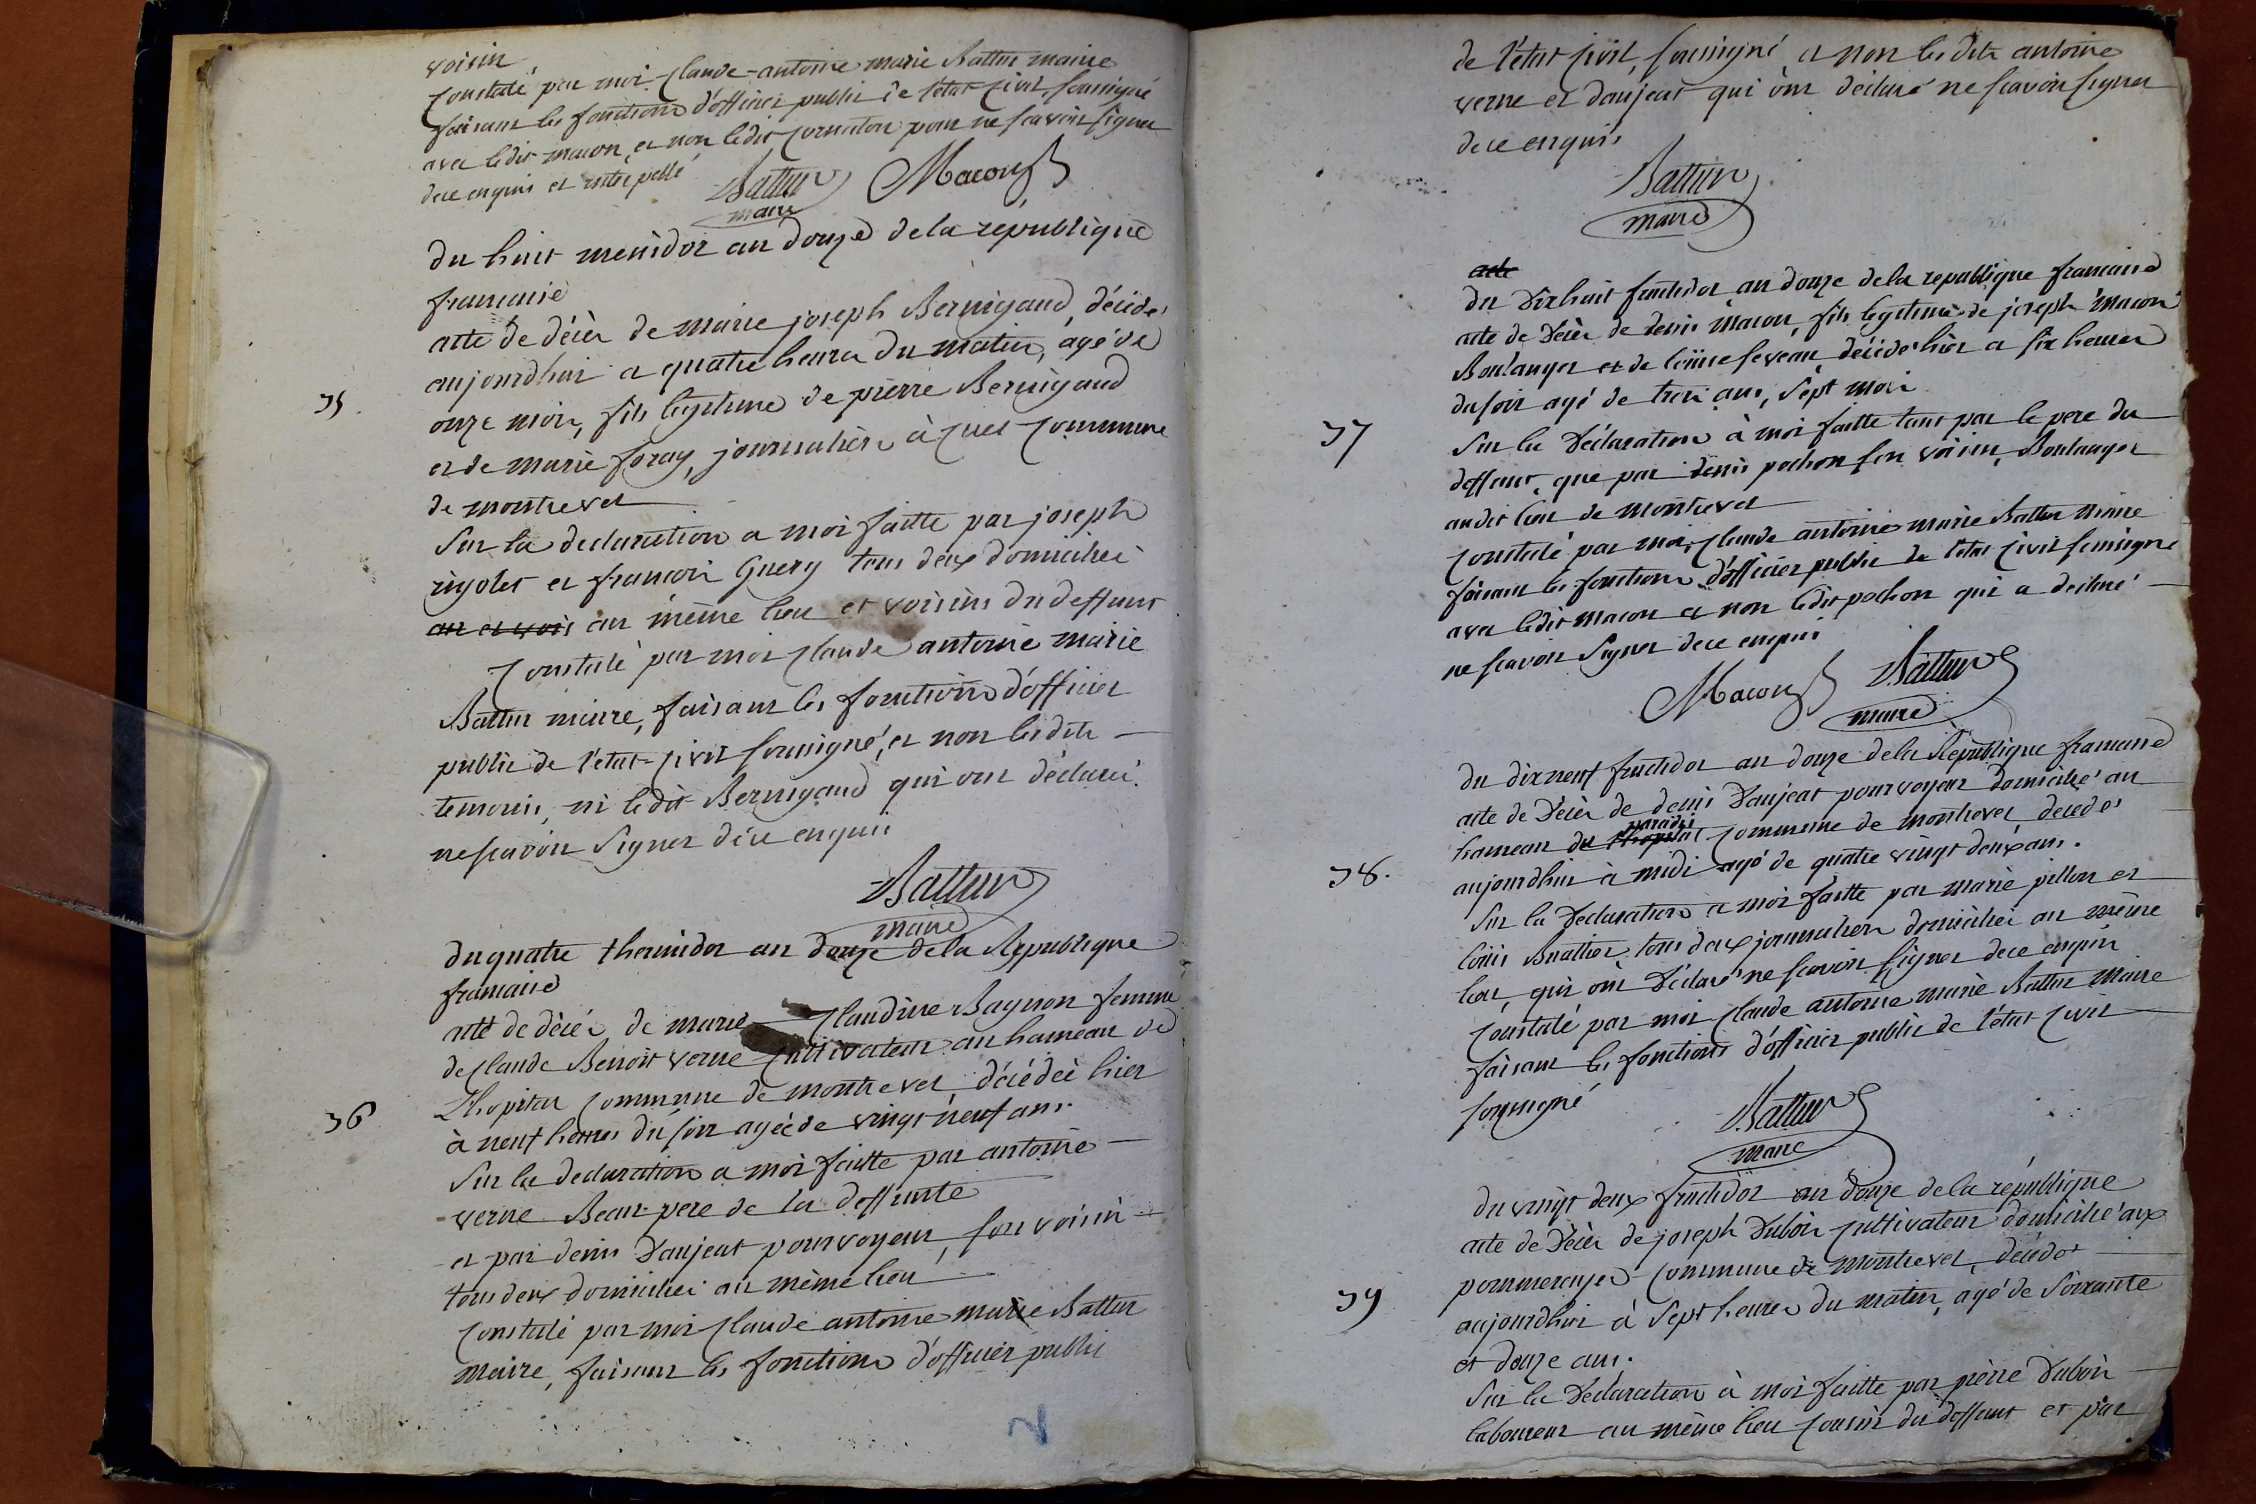 voisin
Constaté par moi Claude-antoine marie Battur maire
faisant les fonctions d'officier public de l'état Civil, soussigné
avec ledit macon, et non ledit Cornaton pour ne scavoir signer
de ce enquis et interpellé
Battur Macon
maire
du huit messidor an douze de la république
francaise
acte de décès de marie joseph Bernigaud, décédé
aujourdhui a quatre heures du matin, agé de
35.
onze mois, fils légitime de pierre Bernigaud
et de marie foray, journaliers à Commune
de montrevel
Sur la declaration a moi faitte par joseph
rigolet et francois Guery tous deux domiciliés
au et vois au même lieu et voisins du deffunt
Constaté par moi Claude antoine marie
Battur maire, faisant les fonctions d'officier
public de l'état-Civil soussigné, et non lesdits
temoins, ni ledit Bernigaud qui ont déclaré
ne scavoir Signer de ce enquis
Battur
maire
du quatre thermidor an douze de la Republique
francaise
acte de décés de marie Claudine Bagnon femme
de Claude Benoit verne Cultivateur au hameau de
L'hopital Commune de montrevel, décédée hier
36
à neuf heures du soir agée de vingt neuf ans.
Sur la declaration a moi faitte par antoine
verne Beau-pere de la deffunte
et par denis Daujeat pourvoyeur, son voisin
tous deux domiciliés au même lieu
Constaté par moi Claude antoine marie Battur
Maire, faisant les fonctions d'officier public
de l'état Civil, soussigné et non lesdits antoine
verne et daujeat qui ont déclaré ne scavoir signer
de ce enquis
Battur
maire
acte
du dix huit fructidor an douze de la republique francaise
acte de décès de denis Macon, fils légitime de joseph macon
Boulanger et de seveau, décédé hier a six heures
du soir agé de trois ans, sept mois
37
Sur la Déclaration à moi faitte tant par le pere du
deffunt, que par denis pochon son voisin, Boulanger
audit lieu de montrevel
Constaté par moi, Claude antoine marie Battur Maire
faisant les fonctions d'officier public de l'état Civil soussigné
avec ledit Macon et non ledit pochon qui a déclaré
ne scavoir Signer de ce enquis
Macon Battur
maire
du dix neuf fructidor an douze de la République francaise
acte de Décès de denis Daujeat pourvoyeur domicilié au
hameau du L'hopital Commune de montrevel décédé
38.
aujourdhui à midi agé de quatre vingt deux ans.
Sur la Declaration a moi faitte par marie pillon et
Louis Buathier tous deux journaliers domiciliés au même
lieu, qui ont Déclaré ne scavoir signer de ce enquis
Constaté par moi Claude antoine marie Battur Maire
faisant les fonctions d'officier public de l'état Civil
soussigné
Battur
maire
du vingt deux fructidor an douze de la république
acte de Décès de joseph Dubois Cultivateur domicilié aux
pommerayes Commune de Montrevel, décédé
39
aujourdhui à Sept heures du matin, agé de soixante
et douze ans.
Sur la Déclaration à moi faitte par pierre Dubois
laboureur au même lieu Cousin du deffunt et par